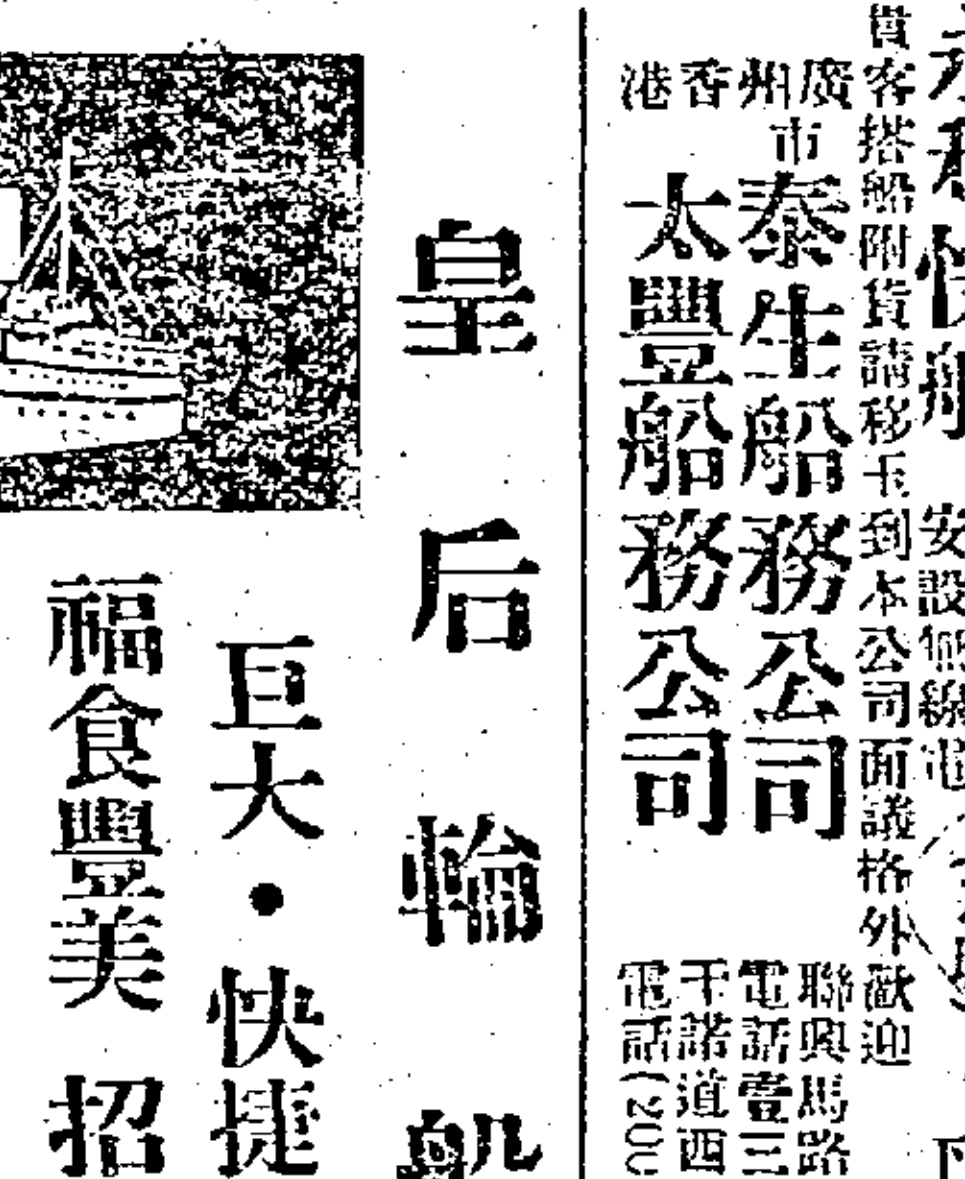 安設無線電
貴客搭船附貨請移玉到本公司面議格外歡迎
廣州市
泰生船務公司
聯興馬路
電話壹三
香港
太豐船務公司
干諾道西
電話(200
皇后輪船
巨大•快捷
福食豐美 招